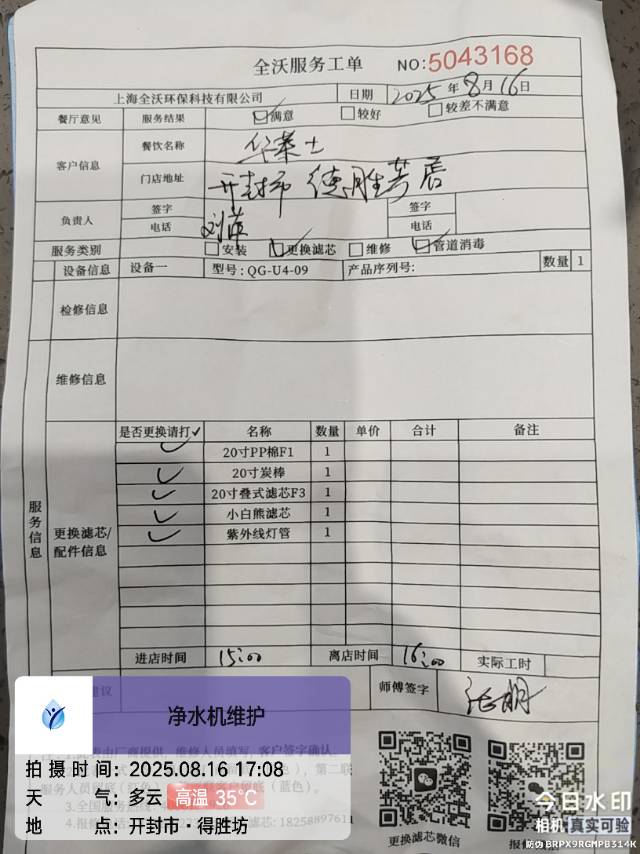 全沃服务工单 NO:5043168
上海全沃环保科技有限公司 日期 2025年8月16日
餐厅意见 服务结果 ☑满意 □较好 □较差不满意
客户信息 餐饮名称 华莱士
门店地址 开封市 德胜芳居
负责人 签字 签字
电话 刘萍 电话
服务类别 □安装 ☑更换滤芯 □维修 ☑管道消毒
设备信息 设备一 型号:QG-U4-09 产品序列号: 数量 1
检修信息
维修信息
服务信息
更换滤芯/配件信息
是否更换请打✓ 名称 数量 单价 合计 备注
✓ 20寸PP棉F1 1
✓ 20寸炭棒 1
✓ 20寸叠式滤芯F3 1
✓ 小白熊滤芯 1
✓ 紫外线灯管 1
进店时间 15:00 离店时间 16:00 实际工时
建议 师傅签字
净水机维护
拍摄时间:2025.08.16 17:08
天气:多云 高温 35℃
地点:开封市·得胜坊
更换滤芯微信
今日水印
相机 真实可验
防伪 BRPX9RGMPB314K